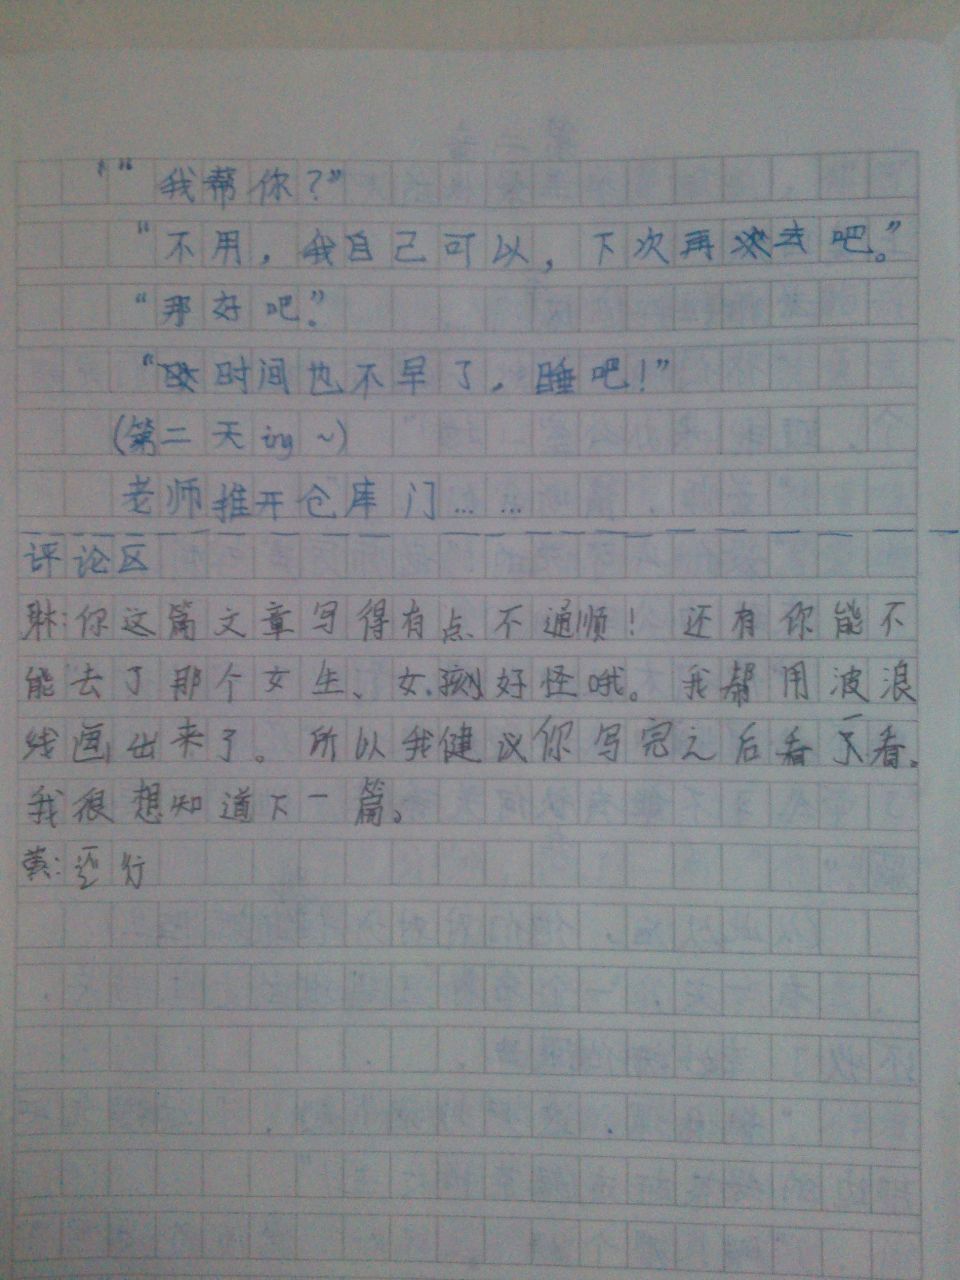 “我帮你？”
“不用，我自己可以，下次再去吧。”
“那好吧。”
“时间也不早了，睡吧！”
(第二天ing ~)
老师推开仓库门……
评论区
琳：你这篇文章写得有点不通顺！还有你能不
能去了那个女生、女孩好怪哦。我帮用波浪
线画出来了。所以我健议你写完之后看一下看。
我很想知道下一篇。
还行